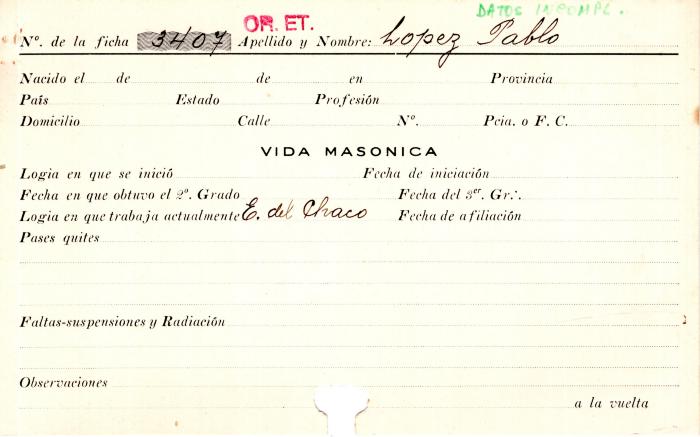 OR. ET. DATOS INCOMPL.
Nº. de la ficha 3407 Apellido y Nombre: Lopez Pablo
Nacido el de de en Provincia
País Estado Profesión
Domicilio Calle Nº. Pcia. o F. C.
VIDA MASONICA
Logia en que se inició Fecha de iniciación
Fecha en que obtuvo el 2º. Grado Fecha del 3er. Gr∴.
Logia en que trabaja actualmente E. del Chaco Fecha de afiliación
Pases quites
Faltas-suspensiones y Radiación
Observaciones
a la vuelta